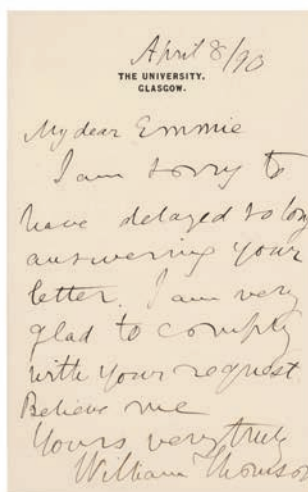 April 8/90
THE UNIVERSITY.
GLASGOW.
My dear Emmie
I am sorry to
have delayed so long
answering your
letter. I am very
glad to comply
with your request
Believe me
Yours very truly
William Thomson